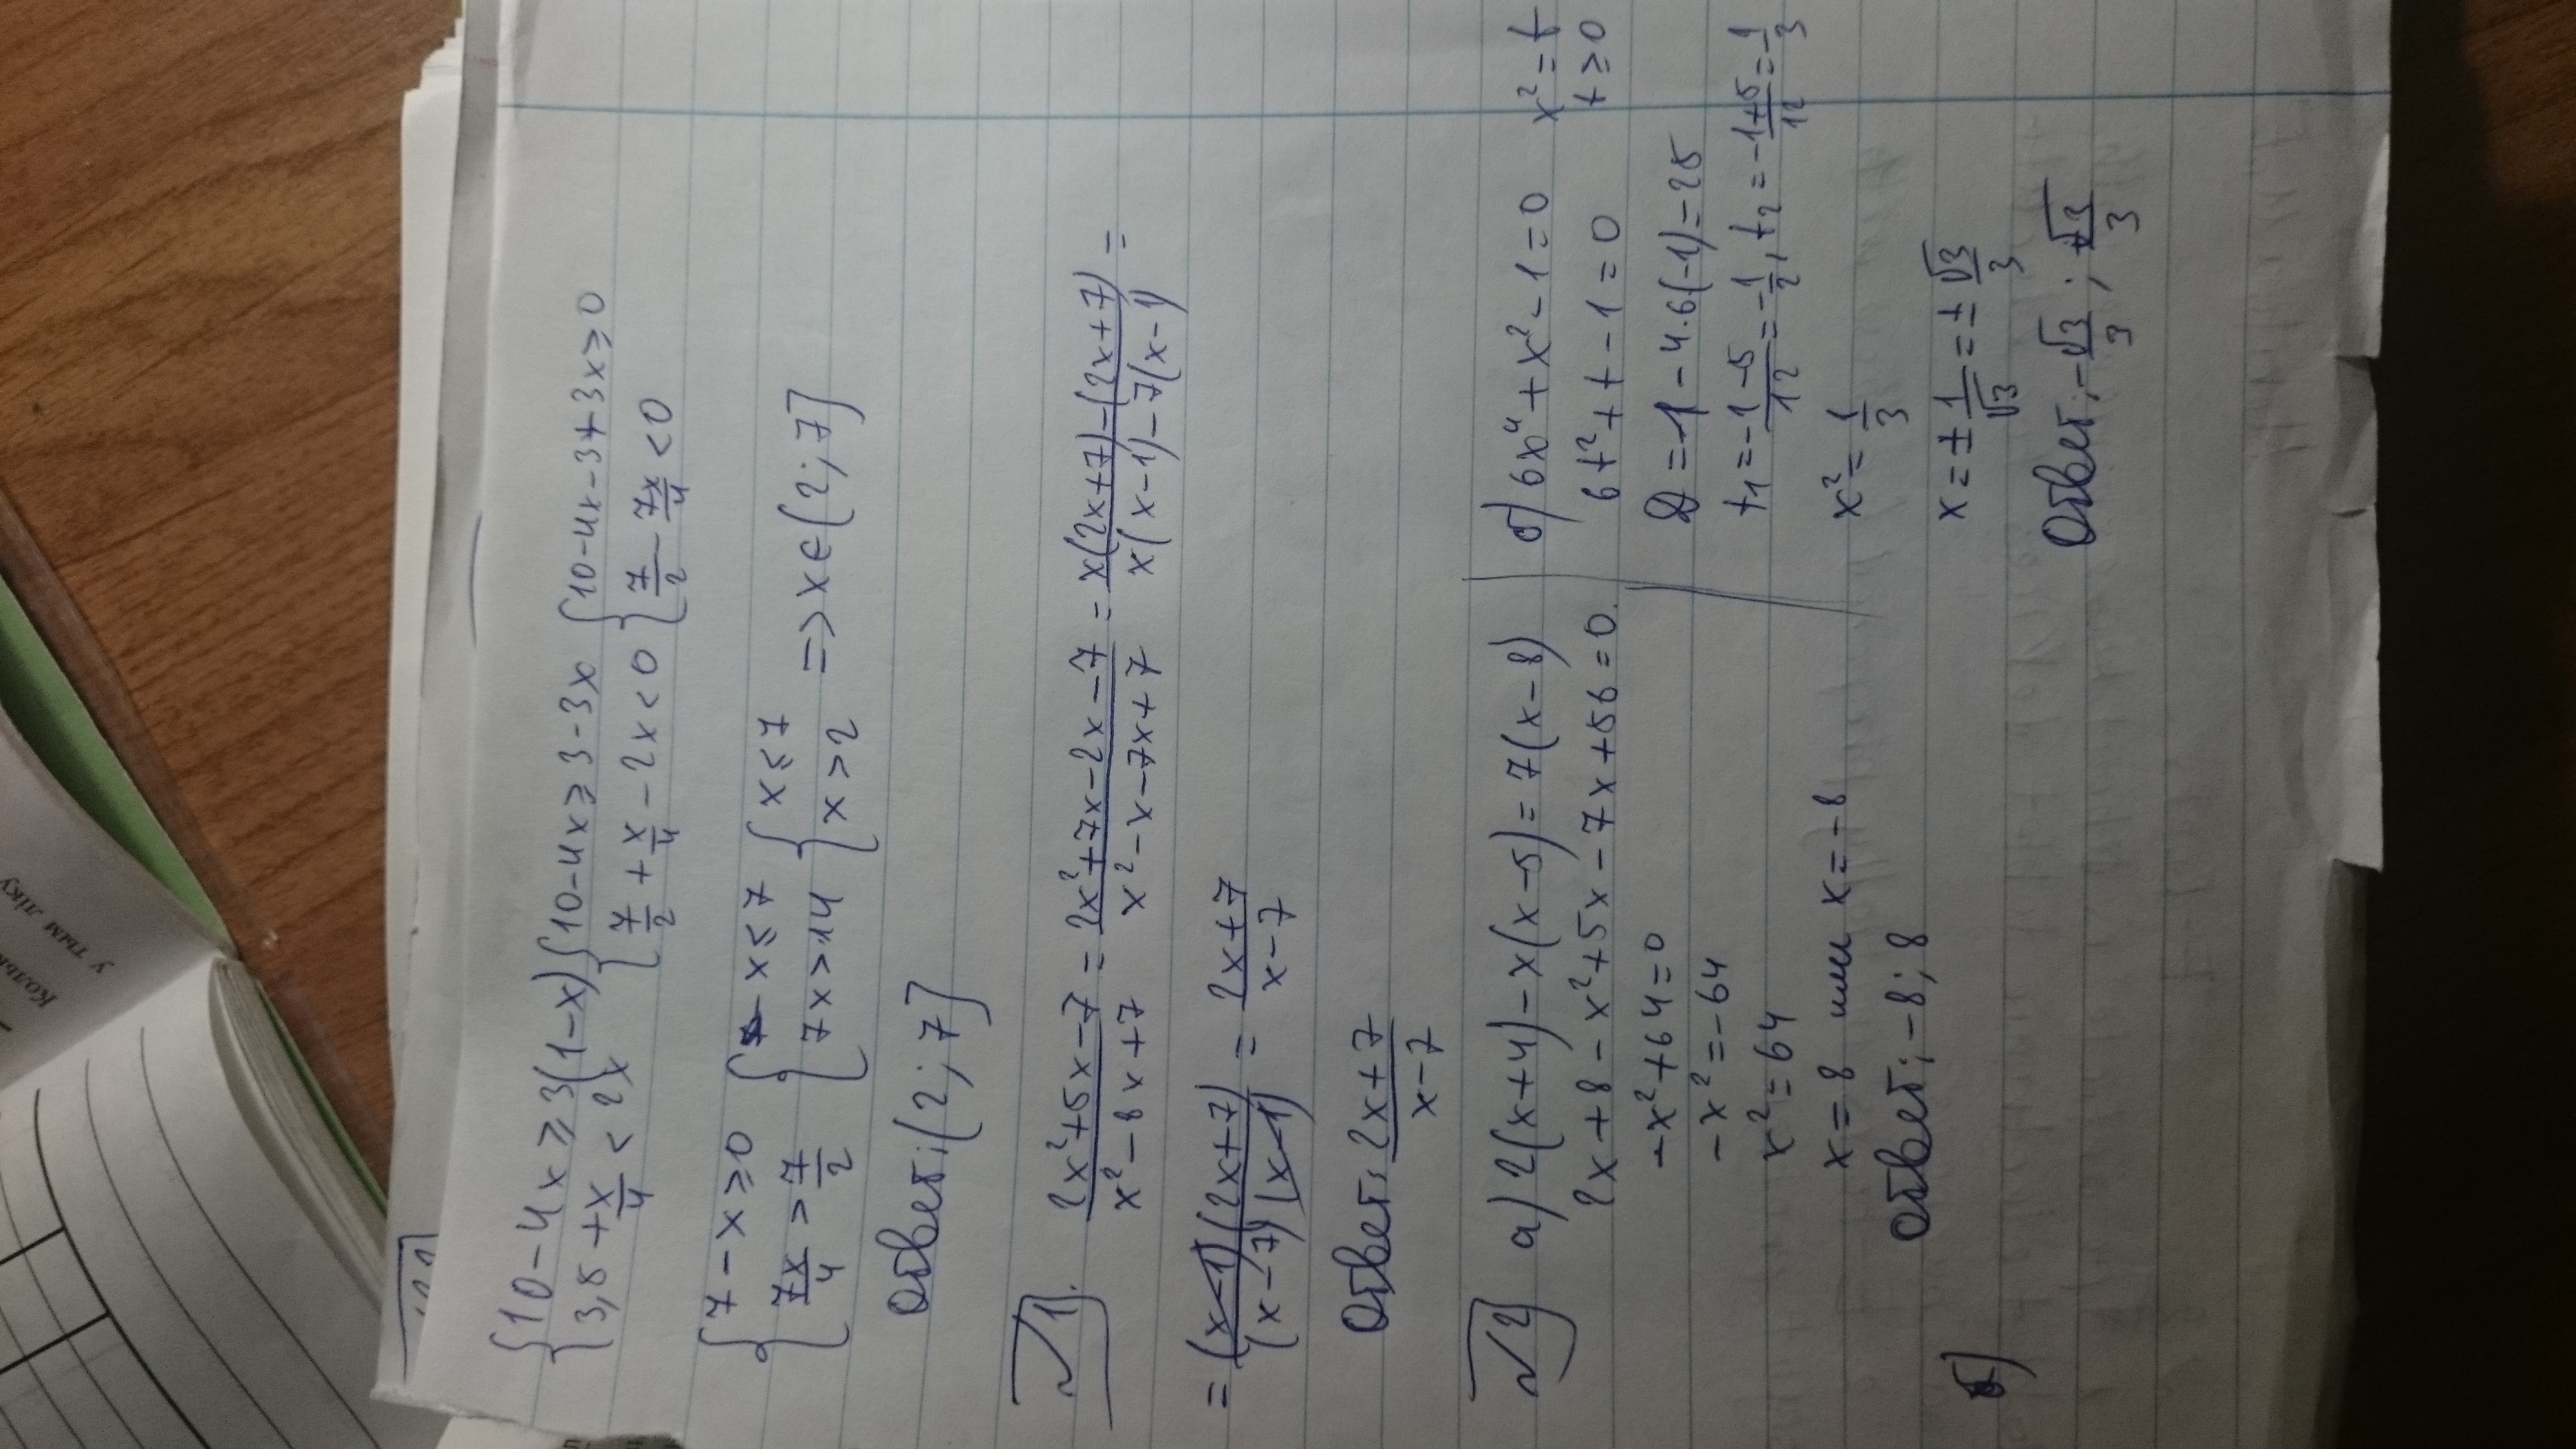 Коль
у тым ліку
{10-4x≥3(1-x) {10-4x≥3-3x {10-4x-3+3x≥0
{3,5+x/4<2x {7/2+x/4-2x<0 {7/2-7x/4<0
{7-x≥0 {x≤7 {x≤7
{7x/4>7/2 {7x>14 {x>2 => x∈(2;7]
Ответ: (2;7]
√1.
(2x²+5x-7)/(x²-8x+7) = (2x²+7x-2x-7)/(x²-x-7x+7) = (x(2x+7)-(2x+7))/(x(x-1)-7(x-1)) =
= ((x-1)(2x+7))/((x-7)(x-1)) = (2x+7)/(x-7)
Ответ: (2x+7)/(x-7)
√2
а) 2(x+4)-x(x-5)=7(x-8)
2x+8-x²+5x-7x+56=0.
-x²+64=0
-x²=-64
x²=64
x=8 или x=-8
Ответ: -8; 8
б) 6x⁴+x²-1=0 x²=t
6t²+t-1=0 t≥0
D=1-4·6(-1)=25
t₁=(-1-5)/12=-1/2, t₂=(-1+5)/12=1/3
x²=1/3
x=±1/√3=±√3/3
Ответ: -√3/3; +√3/3
б)